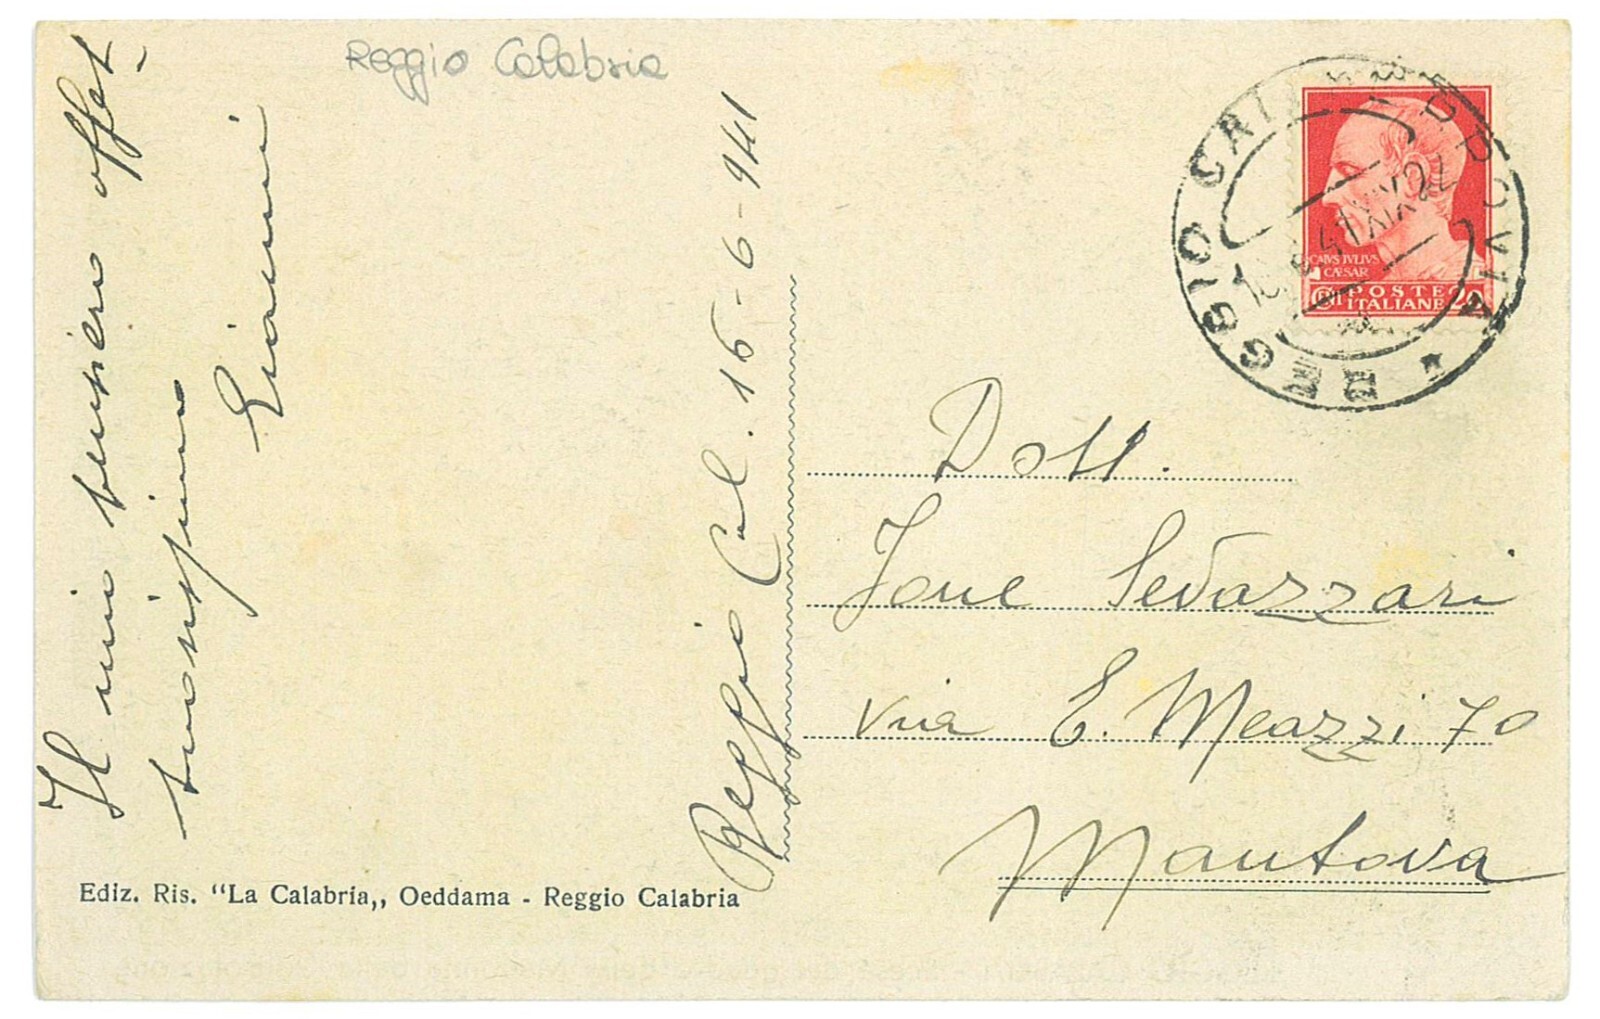 Reggio Calabria
Il mio pensiero affet-
tuosissimo
Gianni
Reggio Cal. 16-6-941
REGGIO CAL FERROVIA
41 XIX 22
CAIVS IVLIVS
CÆSAR
POSTE
ITALIANE 20
Dott.
Jone Sevazzari
via G. Meazzi 70
Mantova
Ediz. Ris. “La Calabria,, Oeddama - Reggio Calabria